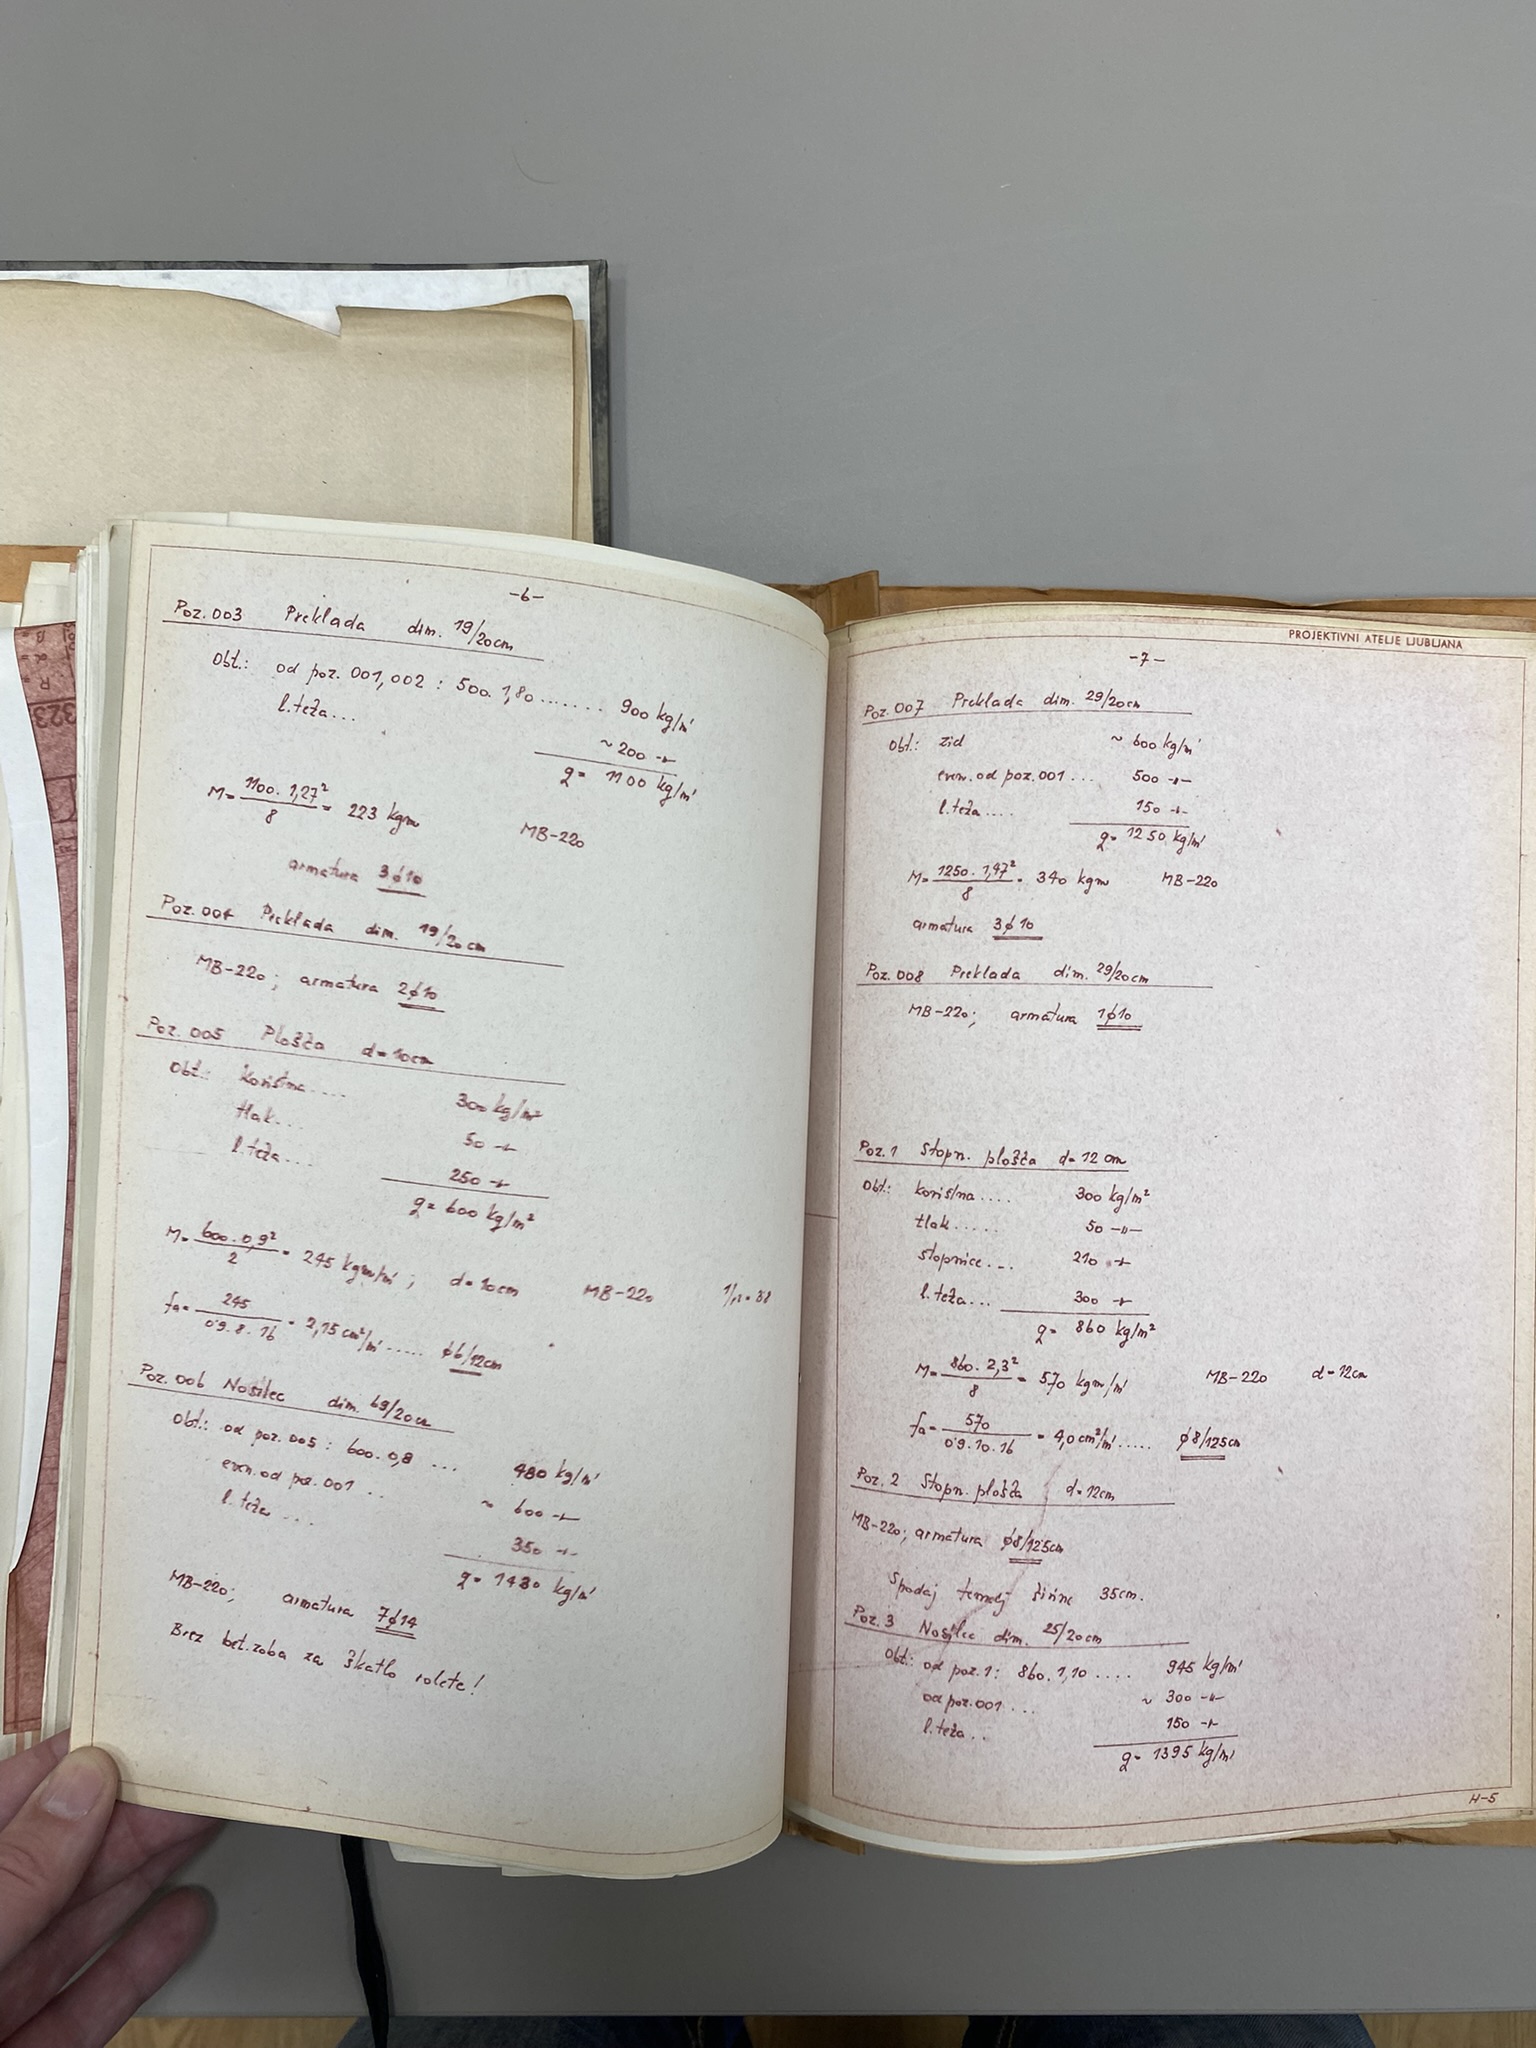 -6-
Poz. 003 Preklada dim. 19/20cm
Obt.: od poz. 001, 002 : 500. 1,80 ....... 900 kg/m'
l. teža ... ~ 200 -"-
g= 1100 kg/m'
M= 1100. 1,27² / 8 = 223 kgm MB-220
armatura 3ϕ10
Poz. 004 Preklada dim. 19/20 cm
MB-220; armatura 2ϕ10
Poz. 005 Plošča d=10cm
Obt.: koristna .... 300 kg/m²
tlak ... 50 -"-
l. teža .... 250 -"-
g= 600 kg/m²
M= 600. 0,9² / 2 = 245 kgm/m' ; d=10cm MB-220
fa= 245 / 0.9. 8. 16 = 2,15 cm²/m' ..... ϕ6/12cm
Poz. 006 Nosilec dim. 69/20cm
Obt.: od poz. 005 : 600. 0,8 ... 480 kg/m'
even. od poz. 001 .. ~ 600 -"-
l. teža .... 350 -"-
g= 1430 kg/m'
MB-220; armatura 7ϕ14
Brez bet. zoba za škatlo rolete!
PROJEKTIVNI ATELJE LJUBLJANA
-7-
Poz. 007 Preklada dim. 29/20cm
Obt.: zid ~ 600 kg/m'
even. od poz. 001 ... 500 -"-
l. teža .... 150 -"-
g= 1250 kg/m'
M= 1250. 1,47² / 8 = 340 kgm MB-220
armatura 3ϕ10
Poz. 008 Preklada dim. 29/20cm
MB-220; armatura 1ϕ10
Poz. 1 Stopn. plošča d= 12 cm
Obt.: koristna .... 300 kg/m²
tlak ..... 50 -"-
stopnice ... 210 -"-
l. teža ... 300 -"-
g= 860 kg/m²
M= 860. 2,3² / 8 = 570 kgm/m' MB-220 d=12cm
fa= 570 / 0.9. 10. 16 = 4,0 cm²/m' ..... ϕ8/12,5cm
Poz. 2 Stopn. plošča d=12cm
MB-220; armatura ϕ8/12,5cm
Spodaj temelj širine 35cm.
Poz. 3 Nosilec dim. 25/20cm
Obt.: od poz. 1: 860. 1,10 .... 945 kg/m'
od poz. 001 ... ~ 300 -"-
l. teža .. 150 -"-
g= 1395 kg/m'
H-5